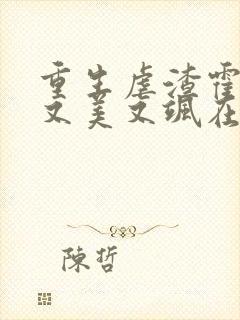 重生虐渣霍
又美又飒在
陳哲